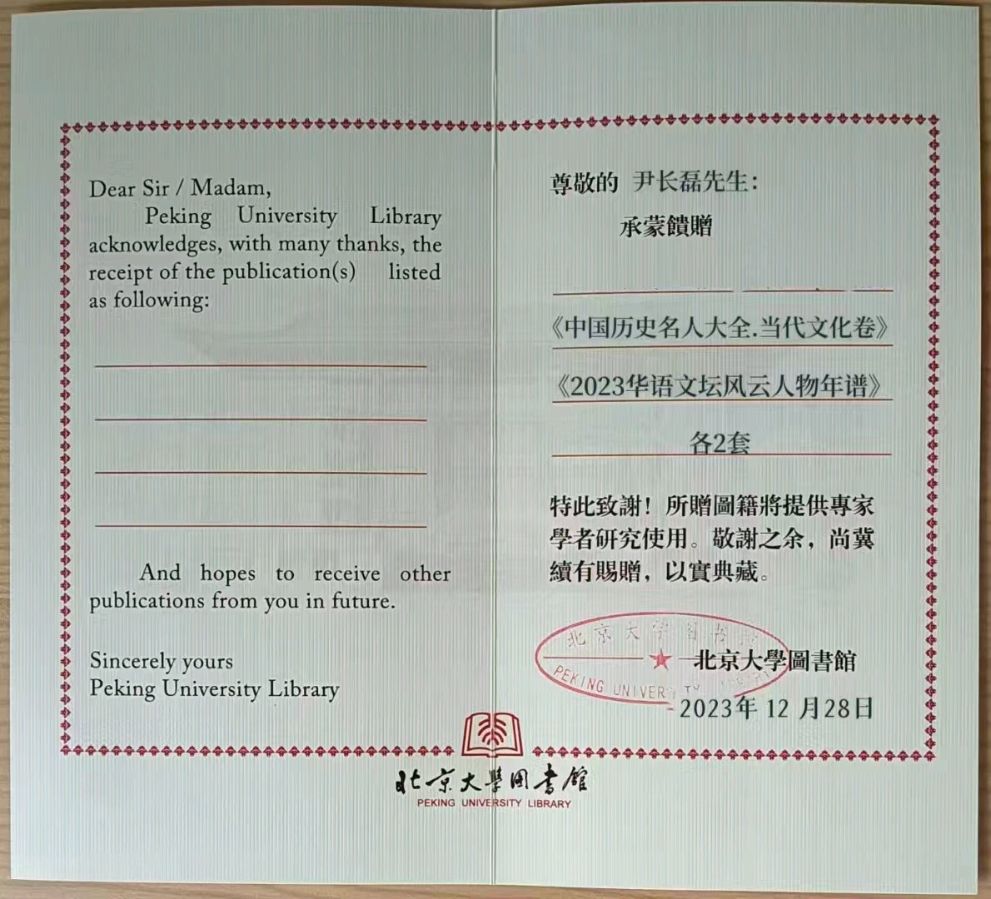 Dear Sir / Madam,
Peking University Library
acknowledges, with many thanks, the
receipt of the publication(s) listed
as following:
And hopes to receive other
publications from you in future.
Sincerely yours
Peking University Library
尊敬的 尹长磊先生：
承蒙饋贈
《中国历史名人大全.当代文化卷》
《2023华语文坛风云人物年谱》
各2套
特此致謝！所贈圖籍將提供專家
學者研究使用。敬謝之余，尚冀
續有賜贈，以實典藏。
北京大学图书
PEKING UNIVERSITY
北京大學圖書館
2023年 12 月28日
北京大學圖書館
PEKING UNIVERSITY LIBRARY